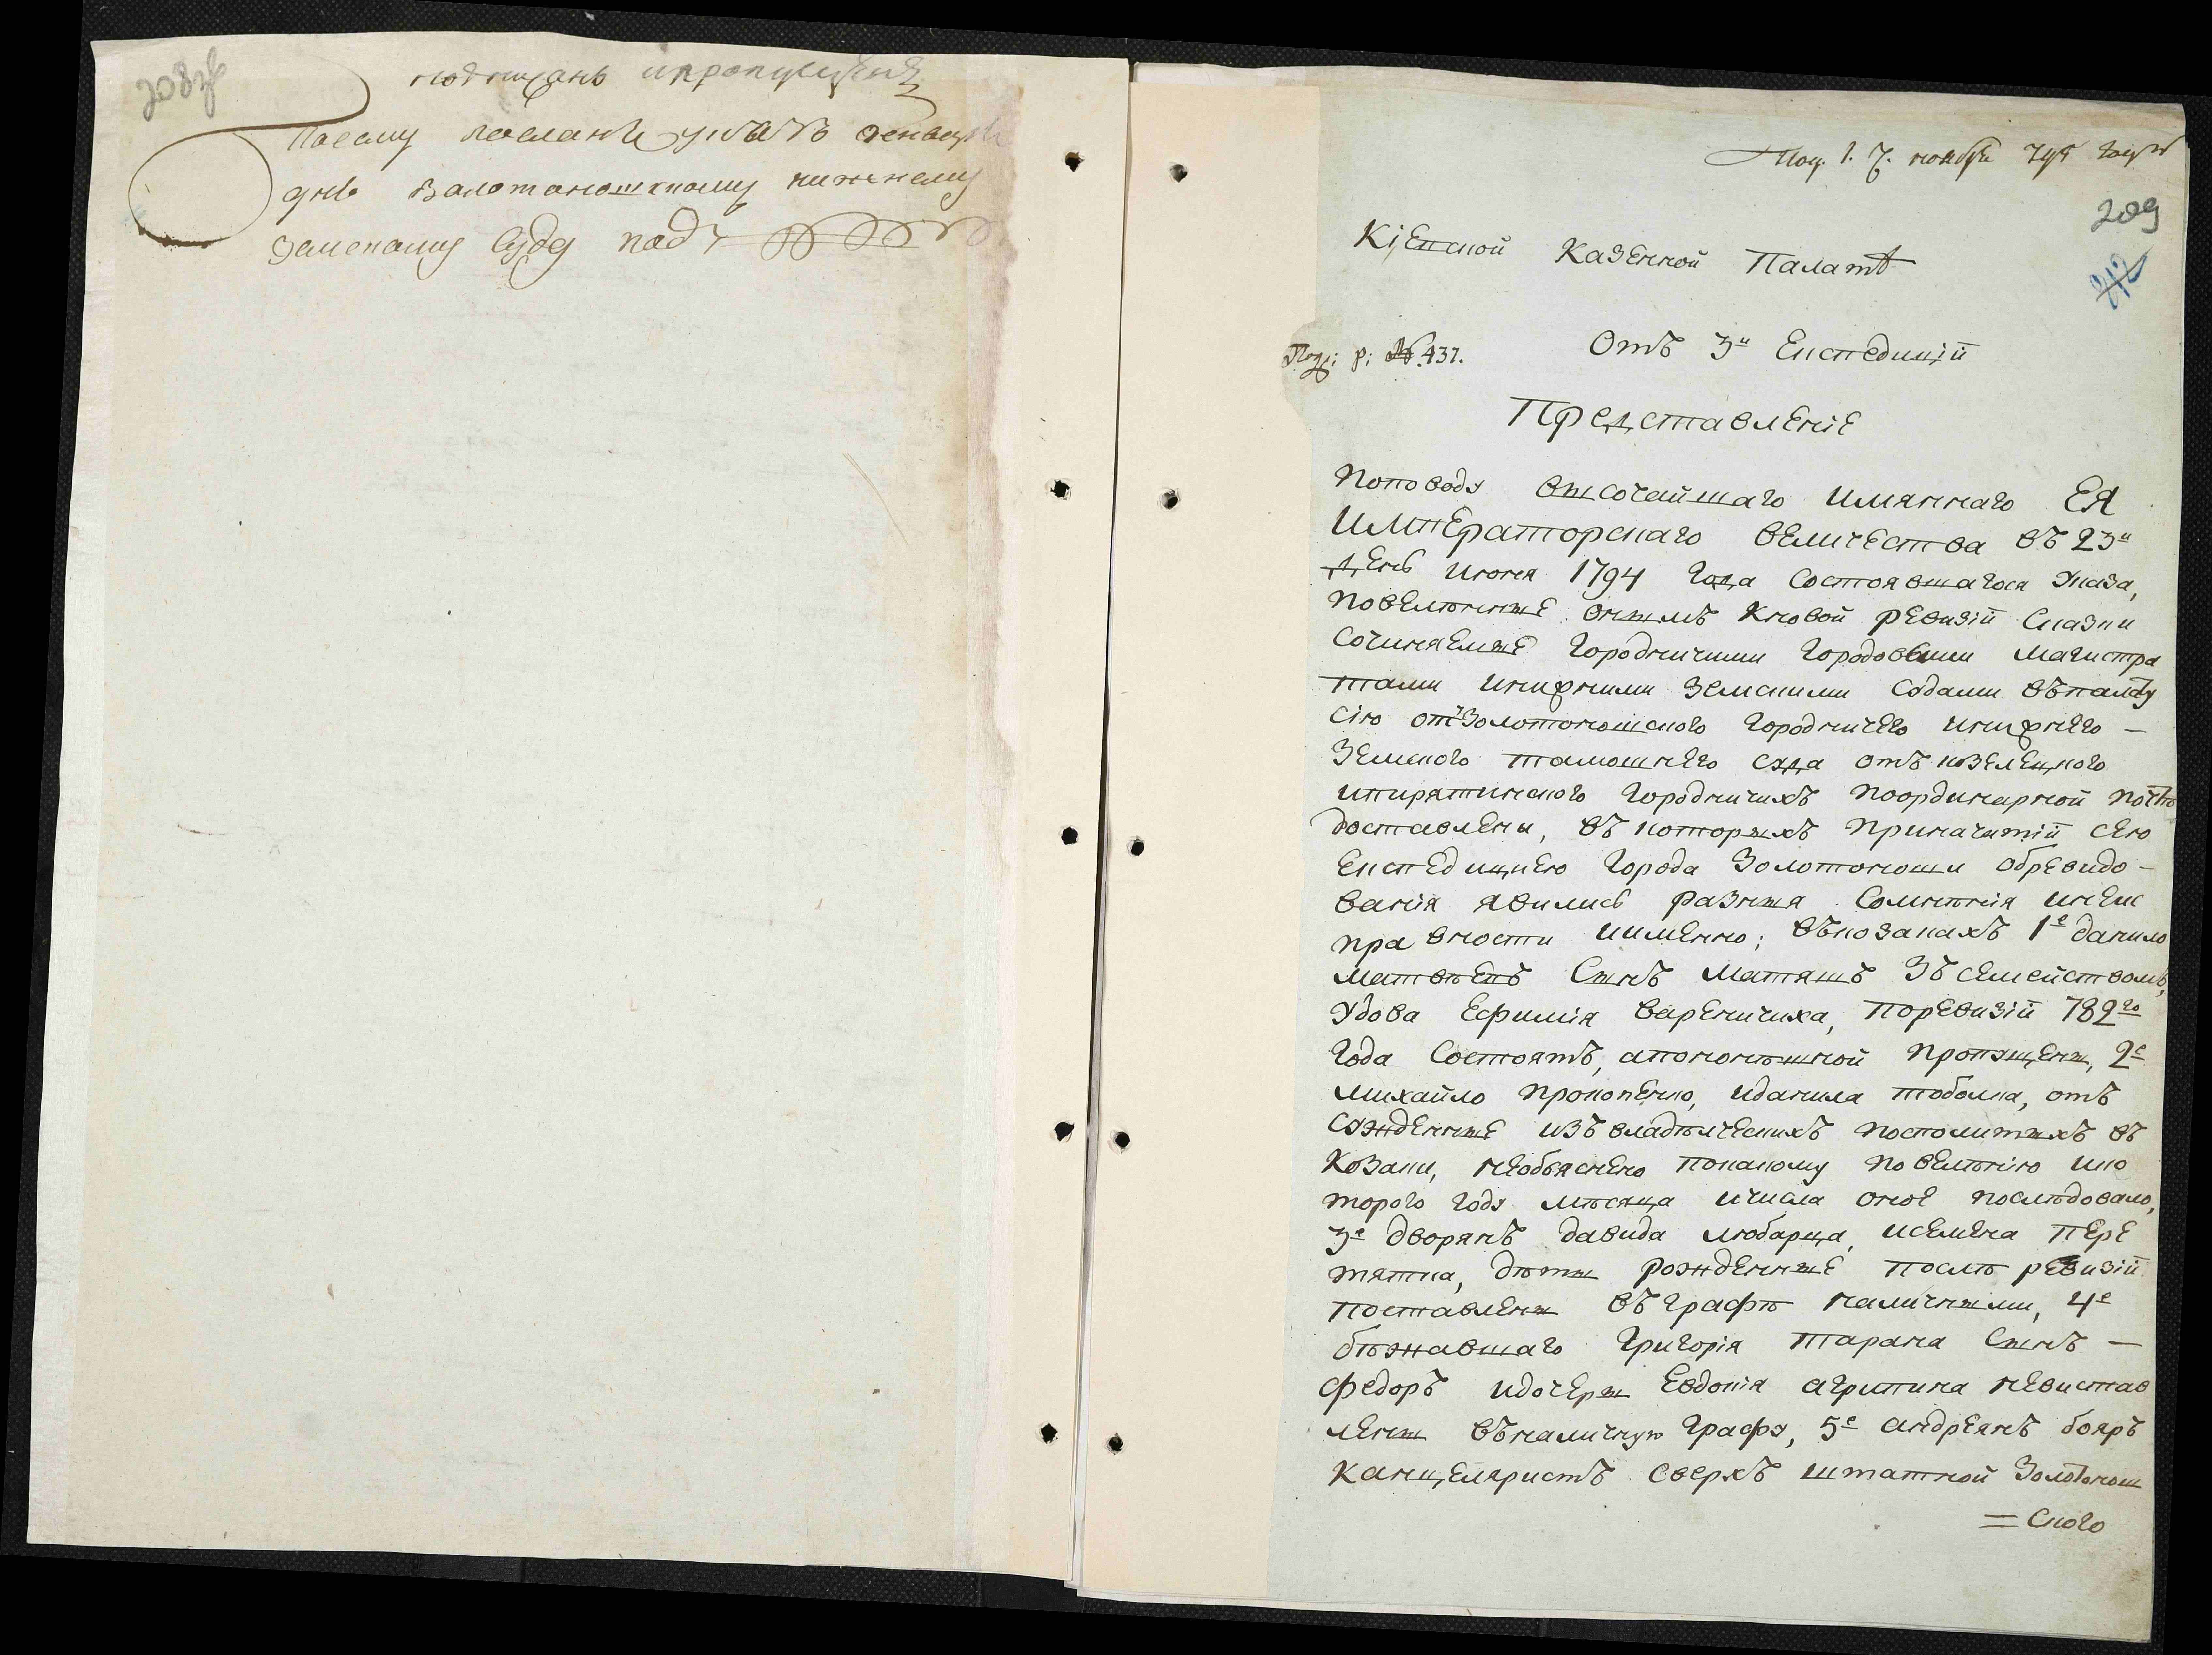 208зв
подписанъ ипропущенъ
Посему посланъ указъ
днѣ Взолотоношскому нижнему
Земскому Суду под
Пол. 1. 7. ноября 794 года
209
212
Кіевской Казенной Палатѣ
Под: р: № 437.
Отъ 3й Експедиціи
Представленіе
Поповоду высочайшаго имяннаго ЕЯ
ИМПЕраторскаго величества въ 23й
день июня 1794 года состоявшагося указа,
повелѣнные онымъ кновой ревизіи Сказки
сочиняемые Городничими Городовыми Магистра
тами инижними Земскими судами въпалату
сію отЗолотоношского Городничего инижнего —
Земского тамошнего суда отъ козелецкого
ипирятинского Городничихъ поординарной почтѣ
доставлены, въ которыхъ приначатіи сею
Експедициею Города Золотоноши обревидо-
ванія явились разныя Сомнѣнія инеис
правности иименно; въкозакахъ 1е данило
матвѣевъ Сынъ матяшъ Зъ семействомъ,
удова Ефимія вареничиха, поревизіи 782го
года Состоятъ, апононѣшной пропущены, 2е
михайло прокопенко, иданила тоболка, отъ
сужденные изъ владѣлческихъ посполитыхъ въ
козаки, необъяснено покакому повелѣнію ико
торого году мѣсяца ичисла оное послѣдовало,
3е дворянъ давида любарца, исемена пере
тятка, дѣти рожденные послѣ ревизіи
поставлены въ графѣ наличными, 4е
бѣжавшаго Григорія тарана Сынъ —
федоръ идочеры Евдокія агрипина невистав
лены въналичную графу, 5е андреянъ бояръ
канцеляристъ сверхъ штатной Золотонош
= Ского